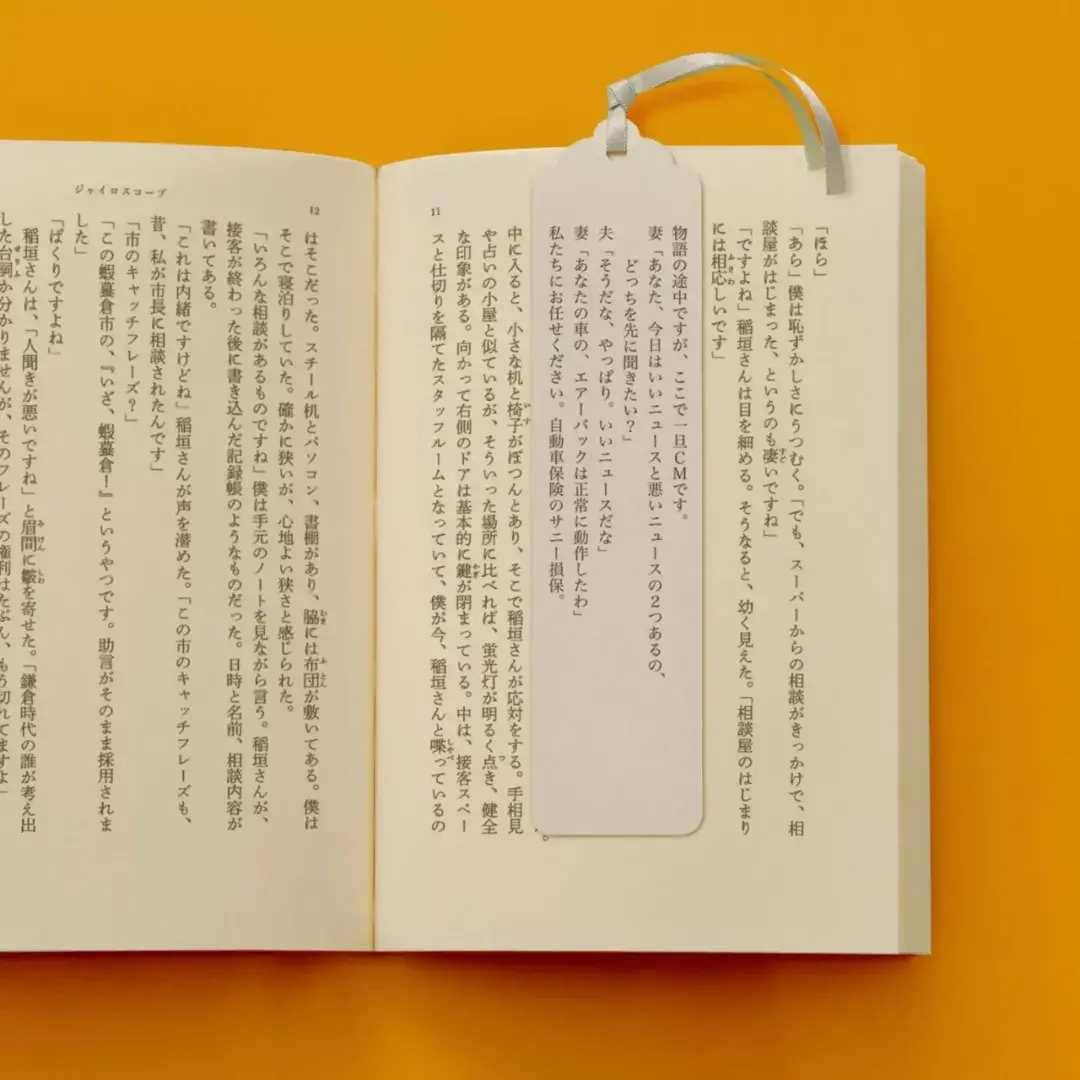 「ほら」
「あら」僕は恥ずかしさにうつむく。「でも、スーパーからの相談がきっかけで、相
談屋がはじまった、というのも凄いですね」
「ですよね」稲垣さんは目を細める。そうなると、幼く見えた。「相談屋のはじまり
には相応しいです」
物語の途中ですが、ここで一旦CMです。
妻「あなた、今日はいいニュースと悪いニュースの2つあるの、
どっちを先に聞きたい？」
夫「そうだな、やっぱり。いいニュースだな」
妻「あなたの車の、エアーバックは正常に動作したわ」
私たちにお任せください。自動車保険のサニー損保。
中に入ると、小さな机と椅子がぽつんとあり、そこで稲垣さんが応対をする。手相見
や占いの小屋と似ているが、そういった場所に比べれば、蛍光灯が明るく点き、健全
な印象がある。向かって右側のドアは基本的に鍵が閉まっている。中は、接客スペー
スと仕切りを隔てたスタッフルームとなっていて、僕が今、稲垣さんと喋っているの
11
12
はそこだった。スチール机とパソコン、書棚があり、脇には布団が敷いてある。僕は
そこで寝泊りしていた。確かに狭いが、心地よい狭さと感じられた。
「いろんな相談があるものですね」僕は手元のノートを見ながら言う。稲垣さんが、
接客が終わった後に書き込んだ記録帳のようなものだった。日時と名前、相談内容が
書いてある。
「これは内緒ですけどね」稲垣さんが声を潜めた。「この市のキャッチフレーズも、
昔、私が市長に相談されたんです」
「市のキャッチフレーズ？」
「この蝦蟇倉市の、『いざ、蝦蟇倉！』というやつです。助言がそのまま採用されま
した」
「ぱくりですよね」
稲垣さんは、「人聞きが悪いですね」と眉間に皺を寄せた。「鎌倉時代の誰が考え出
した台詞か分かりませんが、そのフレーズの権利はたぶん、もう切れてますよ」
ジャイロスコープ